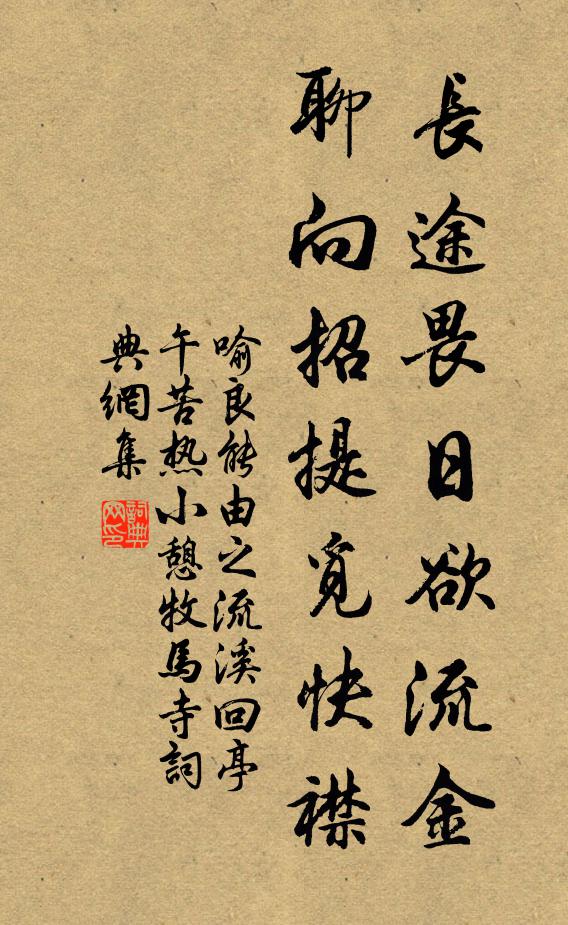 長途畏日欲流金
聊向招提覓快襟
喻良能由之流溪回亭
午苦熱小憩牧馬寺詞
典網集
詞典
网印